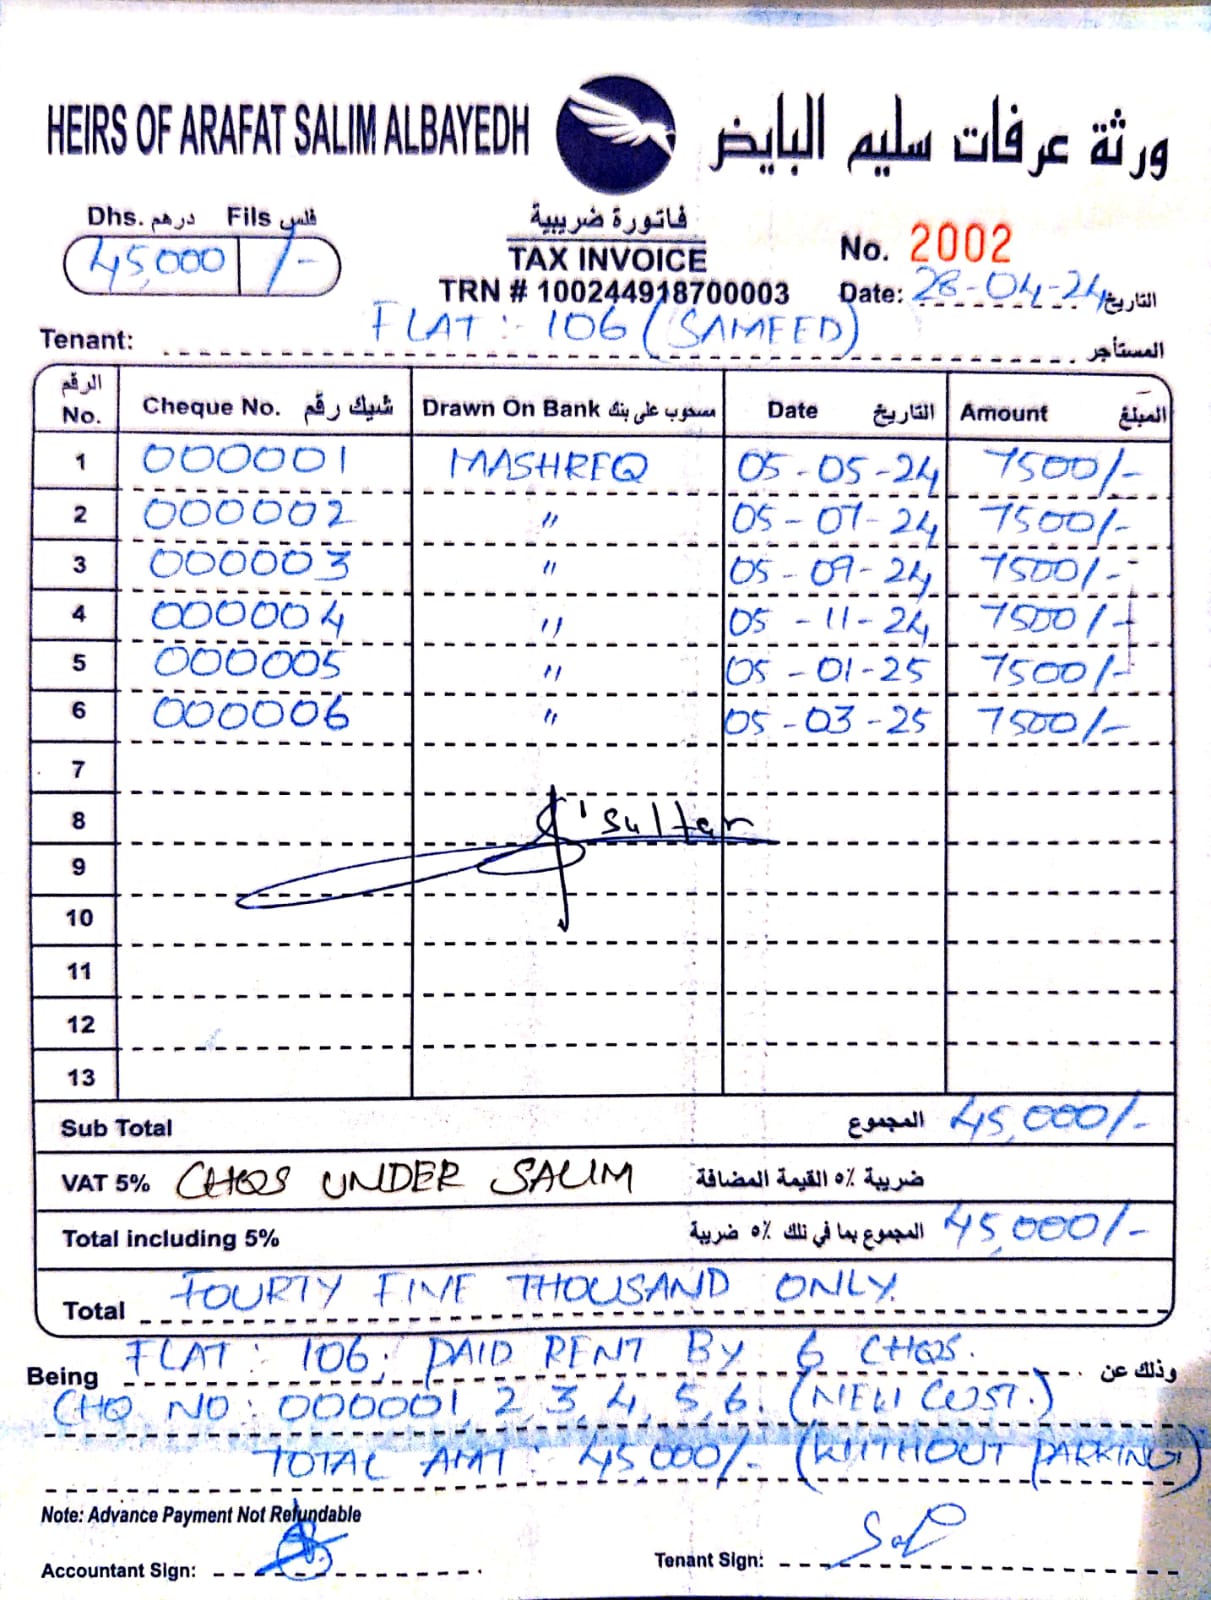 HEIRS OF ARAFAT SALIM ALBAYEDH ورثة عرفات سليم البايض
Dhs. درهم Fils فلس
45,000 /-
فاتورة ضريبية
TAX INVOICE
TRN # 100244918700003
No. 2002
Date: 28-04-24 التاريخ
Tenant: FLAT :- 106 (SAMEED) المستأجر
الرقم No. Cheque No. شيك رقم Drawn On Bank مسحوب على بنك Date التاريخ Amount المبلغ
1 000001 MASHREQ 05-05-24 7500/-
2 000002 " 05-07-24 7500/-
3 000003 " 05-09-24 7500/-
4 000004 " 05-11-24 7500/-
5 000005 " 05-01-25 7500/-
6 000006 " 05-03-25 7500/-
7
8 Sultan
9
10
11
12
13
Sub Total المجموع 45,000/-
VAT 5% CHQS UNDER SALIM ضريبة ٥% القيمة المضافة
Total including 5% المجموع بما في تلك ٥% ضريبة 45,000/-
Total FOURTY FIVE THOUSAND ONLY.
Being FLAT : 106, PAID RENT BY 6 CHQS. وذلك عن
CHQ NO : 000001, 2, 3, 4, 5, 6. (NEW CUST.)
TOTAL AMT : 45,000/- (WITHOUT PARKING)
Note: Advance Payment Not Refundable
Accountant Sign:
Tenant Sign: